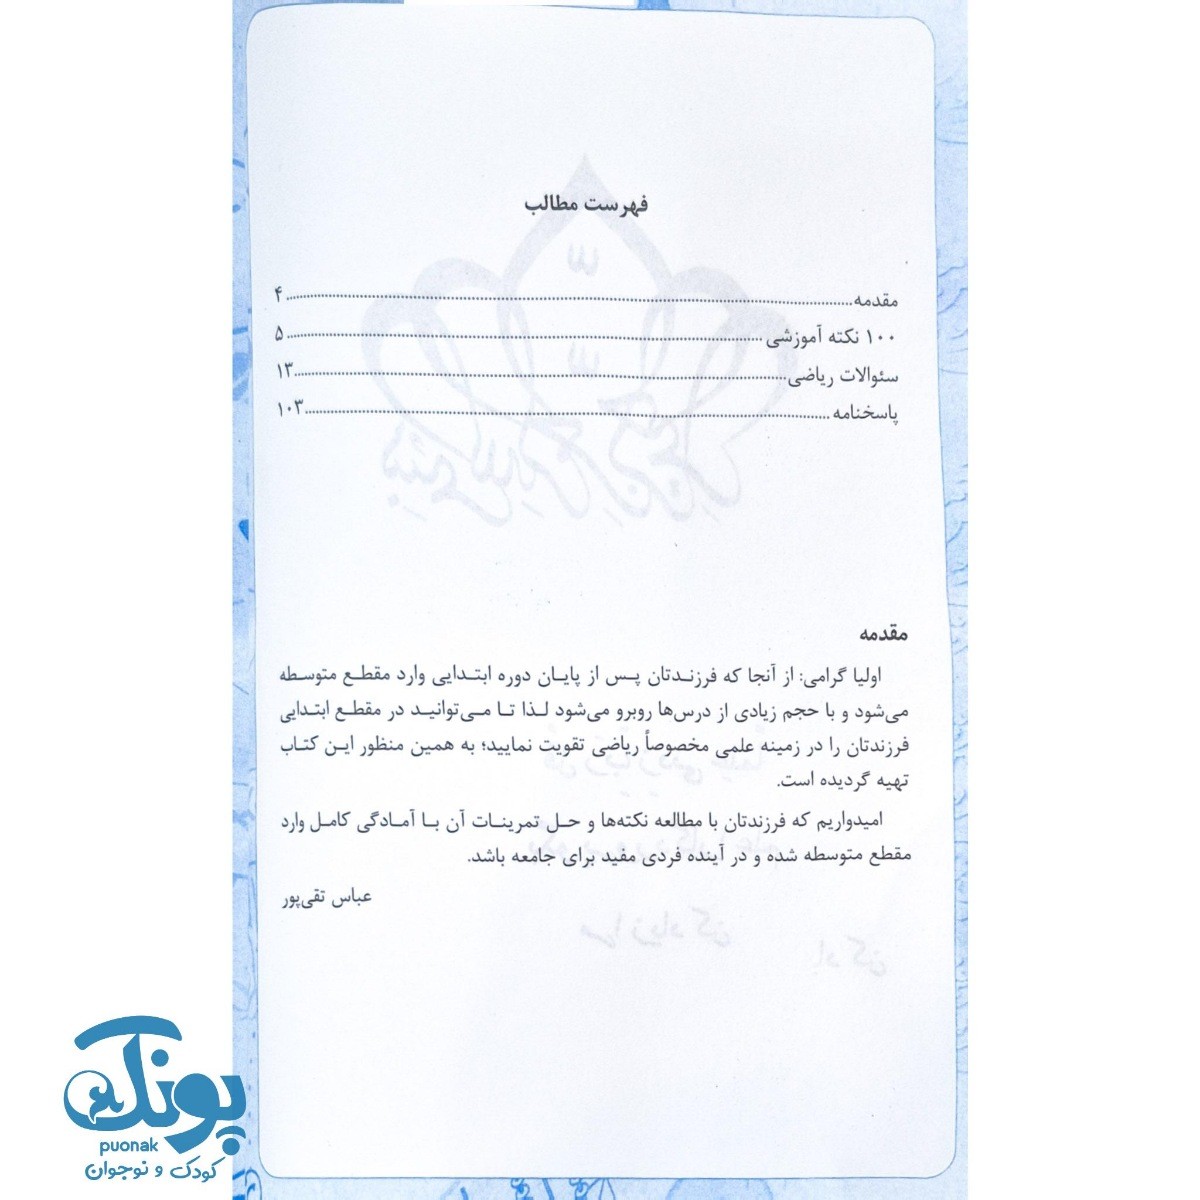 فهرست مطالب
مقدمه ........ ۴
۱۰۰ نکته آموزشی ........ ۵
سئوالات ریاضی ........ ۱۳
پاسخنامه ........ ۱۰۳
مقدمه
اولیا گرامی: از آنجا که فرزندتان پس از پایان دوره ابتدایی وارد مقطع متوسطه
می‌شود و با حجم زیادی از درس‌ها روبرو می‌شود لذا تا می‌توانید در مقطع ابتدایی
فرزندتان را در زمینه علمی مخصوصاً ریاضی تقویت نمایید؛ به همین منظور این کتاب
تهیه گردیده است.
امیدواریم که فرزندتان با مطالعه نکته‌ها و حل تمرینات آن با آمادگی کامل وارد
مقطع متوسطه شده و در آینده فردی مفید برای جامعه باشد.
عباس تقی‌پور
پونک
puonak
کودک و نوجوان